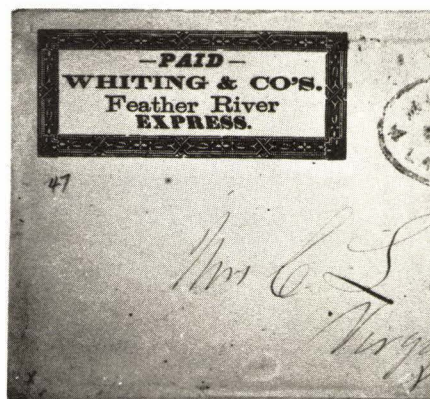 —PAID—
WHITING & CO'S.
Feather River
EXPRESS.
47
Mrs C. L
Virg